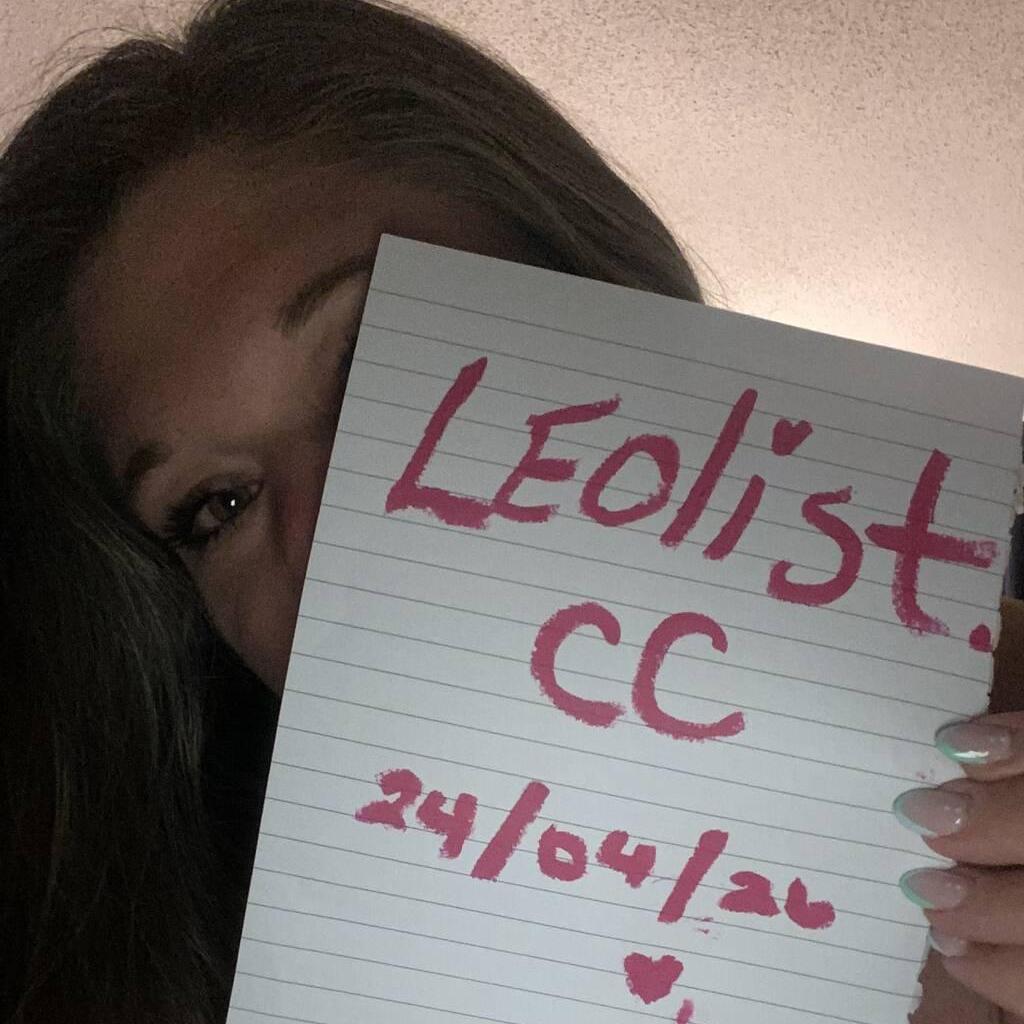 LEOlist.
CC
24/04/26